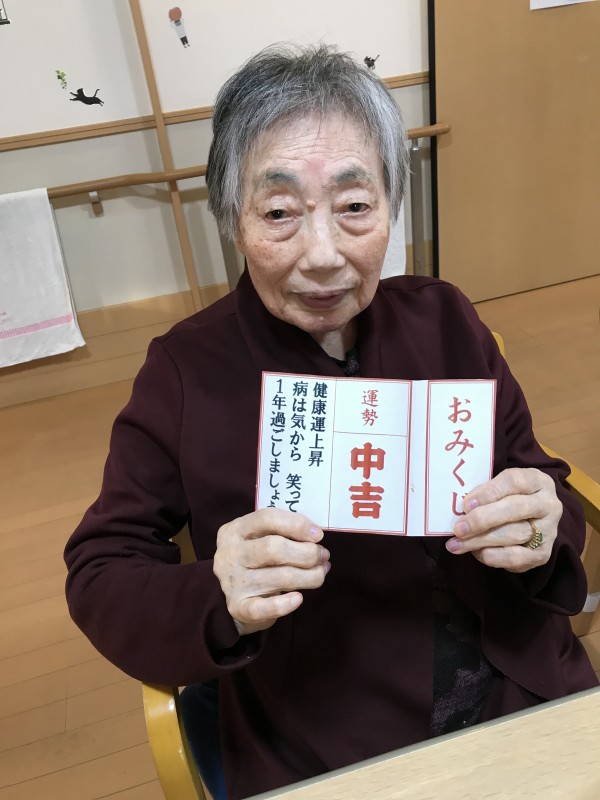 おみくじ
運勢
中吉
健康運上昇
病は気から 笑って
1年過ごしましょう